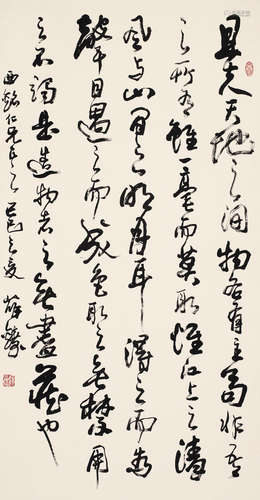 且夫天地之間物各有主苟非吾
之所有雖一毫而莫取惟江上之清
風與山間之明月耳得之而為
聲目遇之而成色取之無禁用
之不竭是造物者之無盡藏也
西銘仁兄正之己巳之夏薛